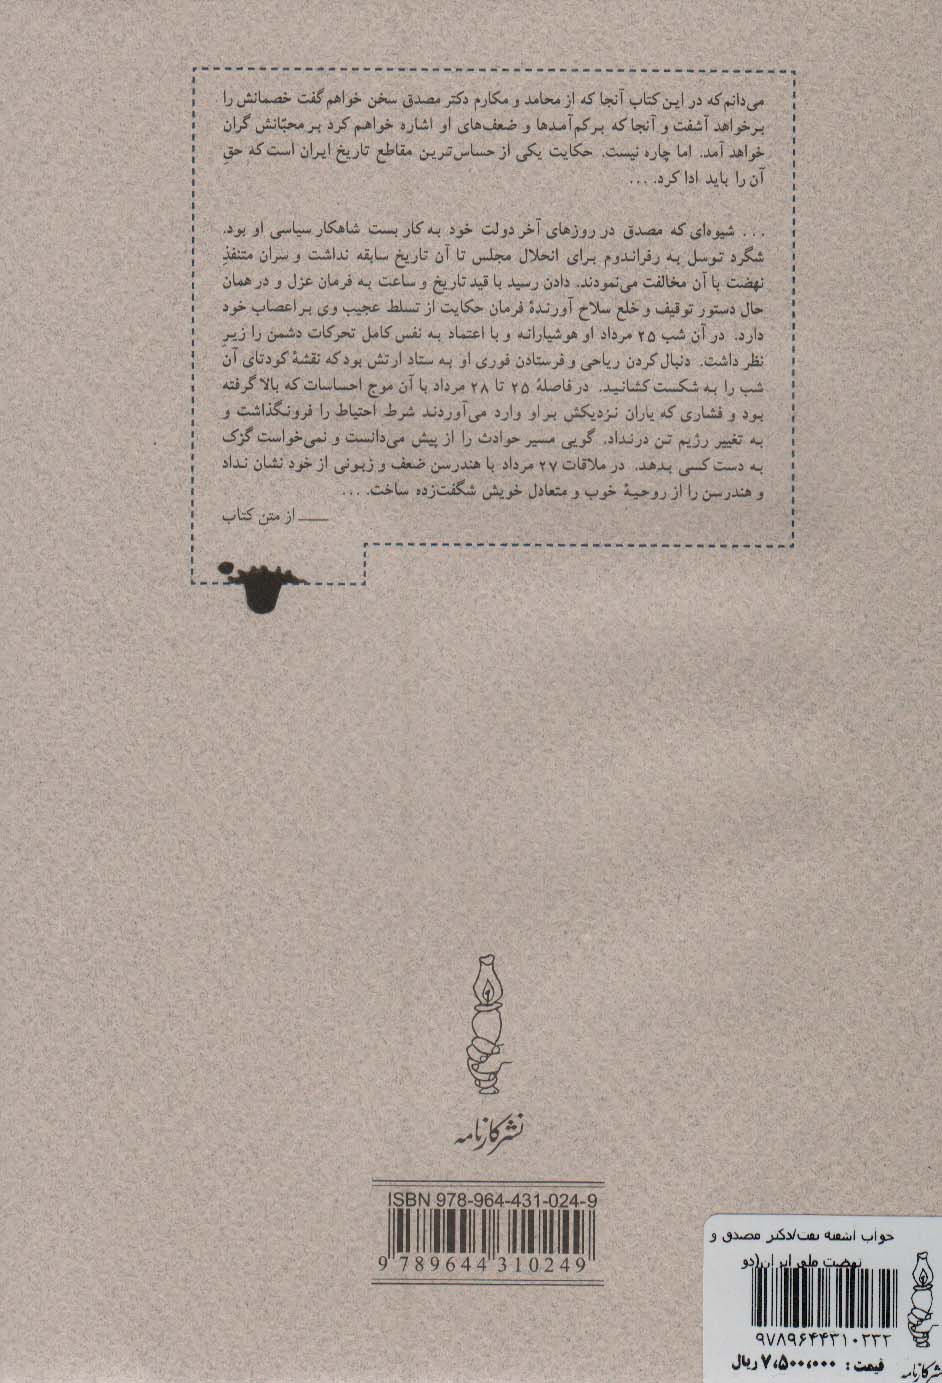 می‌دانم که در این کتاب آنجا که از محامد و مکارم دکتر مصدق سخن خواهم گفت خصمانش را
برخواهد آشفت و آنجا که برکم‌آمدها و ضعف‌های او اشاره خواهم کرد بر محبّانش گران
خواهد آمد. اما چاره نیست. حکایت یکی از حساس‌ترین مقاطع تاریخ ایران است که حقِ
آن را باید ادا کرد. ...
... شیوه‌ای که مصدق در روزهای آخر دولت خود به کار بست شاهکار سیاسی او بود.
شگرد توسل به رفراندوم برای انحلال مجلس تا آن تاریخ سابقه نداشت و سران متنفذِ
نهضت با آن مخالفت می‌نمودند. دادن رسید با قید تاریخ و ساعت به فرمان عزل و در همان
حال دستور توقیف و خلع سلاح آورندهٔ فرمان حکایت از تسلط عجیب وی بر اعصاب خود
دارد. در آن شب ۲۵ مرداد او هوشیارانه و با اعتماد به نفس کامل تحرکات دشمن را زیرِ
نظر داشت. دنبال کردن ریاحی و فرستادن فوری او به ستاد ارتش بود که نقشهٔ کودتای آن
شب را به شکست کشانید. در فاصلهٔ ۲۵ تا ۲۸ مرداد با آن موج احساسات که بالا گرفته
بود و فشاری که یاران نزدیکش بر او وارد می‌آوردند شرط احتیاط را فرونگذاشت و
به تغییر رژیم تن درنداد. گویی مسیر حوادث را از پیش می‌دانست و نمی‌خواست گزک
به دست کسی بدهد. در ملاقات ۲۷ مرداد با هندرسن ضعف و زبونی از خود نشان نداد
و هندرسن را از روحیهٔ خوب و متعادل خویش شگفت‌زده ساخت. ...
از متن کتاب
نشر کارنامه
ISBN 978-964-431-024-9
9 789644 310249
خواب آشفته نفت/دکتر مصدق و
نهضت ملی ایران(دو
۹۷۸۹۶۴۴۳۱۰۲۳۲
قیمت : ۷،۵۰۰،۰۰۰ ریال
نشر کارنامه